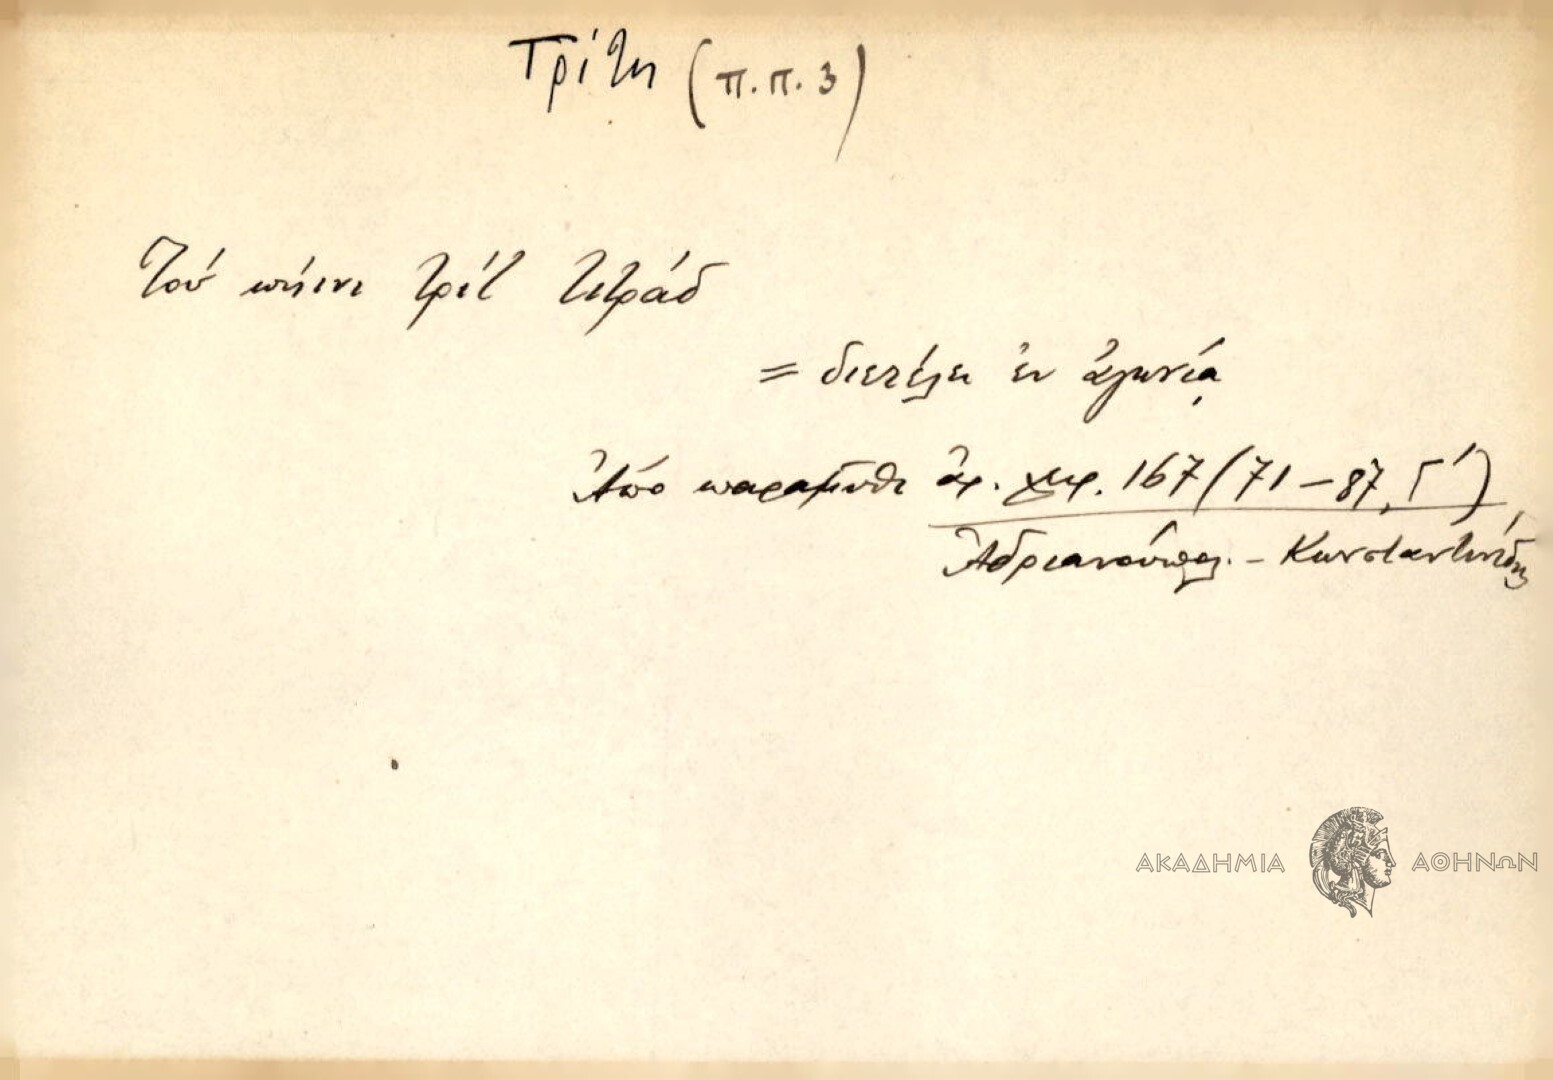 Τρίτη (π.π. 3)
Τού πήινι Τρίτ Τιτράδ
= διετέλει ἐν ἀγωνίᾳ
Ἀπό παραμύθι ἀρ. χειρ. 167 (71-87, Γ')
Ἀδριανούπολ. - Κωνσταντινίδη
ΑΚΑΔΗΜΙΑ ΑΘΗΝΩΝ